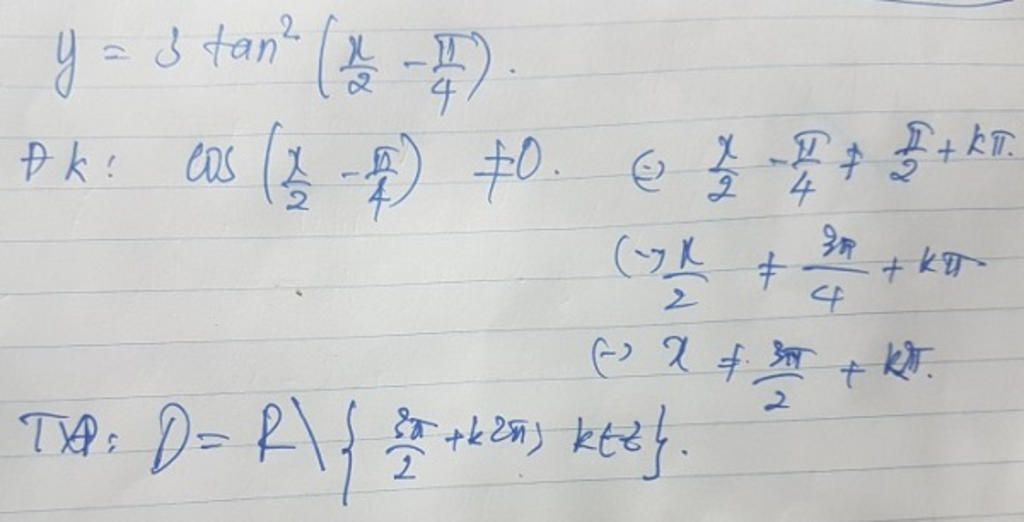 y = 3 tan² (x/2 - π/4).
Đk: cos (x/2 - π/4) ≠ 0. (=) x/2 - π/4 ≠ π/2 + kπ.
(=) x/2 ≠ 3π/4 + kπ
(=) x ≠ 3π/2 + k2π.
TXĐ: D = R \ { 3π/2 + k2π, k ∈ Z }.